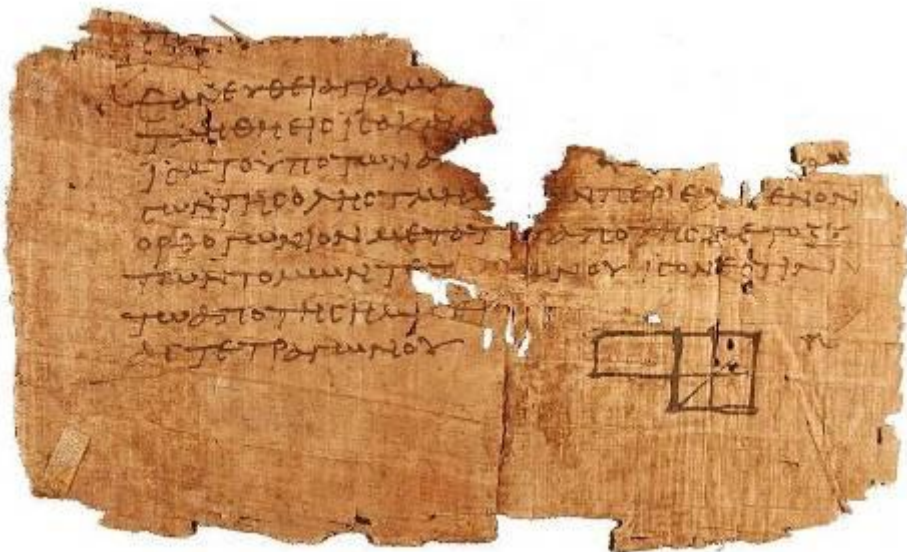 ΕΑΝ ΕΥΘΕΙΑ ΓΡΑΜΜ
ΤΜΗΘΗ ΕΙC ΙCΑ ΚΑΙ ΑΝ
ΙCΑ ΤΟ ΥΠΟ ΤΩΝ ΑΝ
CΩΝ ΤΗC ΟΛΗC ΤΜΗΜΑ Ν ΠΕΡΙΕΧΟΜΕΝΟΝ
ΟΡΘΟΓΩΝΙΟΝ ΜΕΤΑ ΤΟΥ ΑΠΟ ΤΗC ΜΕΤΟΞΥ
ΤΩΝ ΤΟΜΩΝ ΤΕ ΩΝΟΥ ΙCΟΝ ΕCΤΙΝ
ΤΩ ΑΠΟ ΤΗC ΗΜΙ
ΑC ΤΕΤΡΑΓΩΝΟΥ